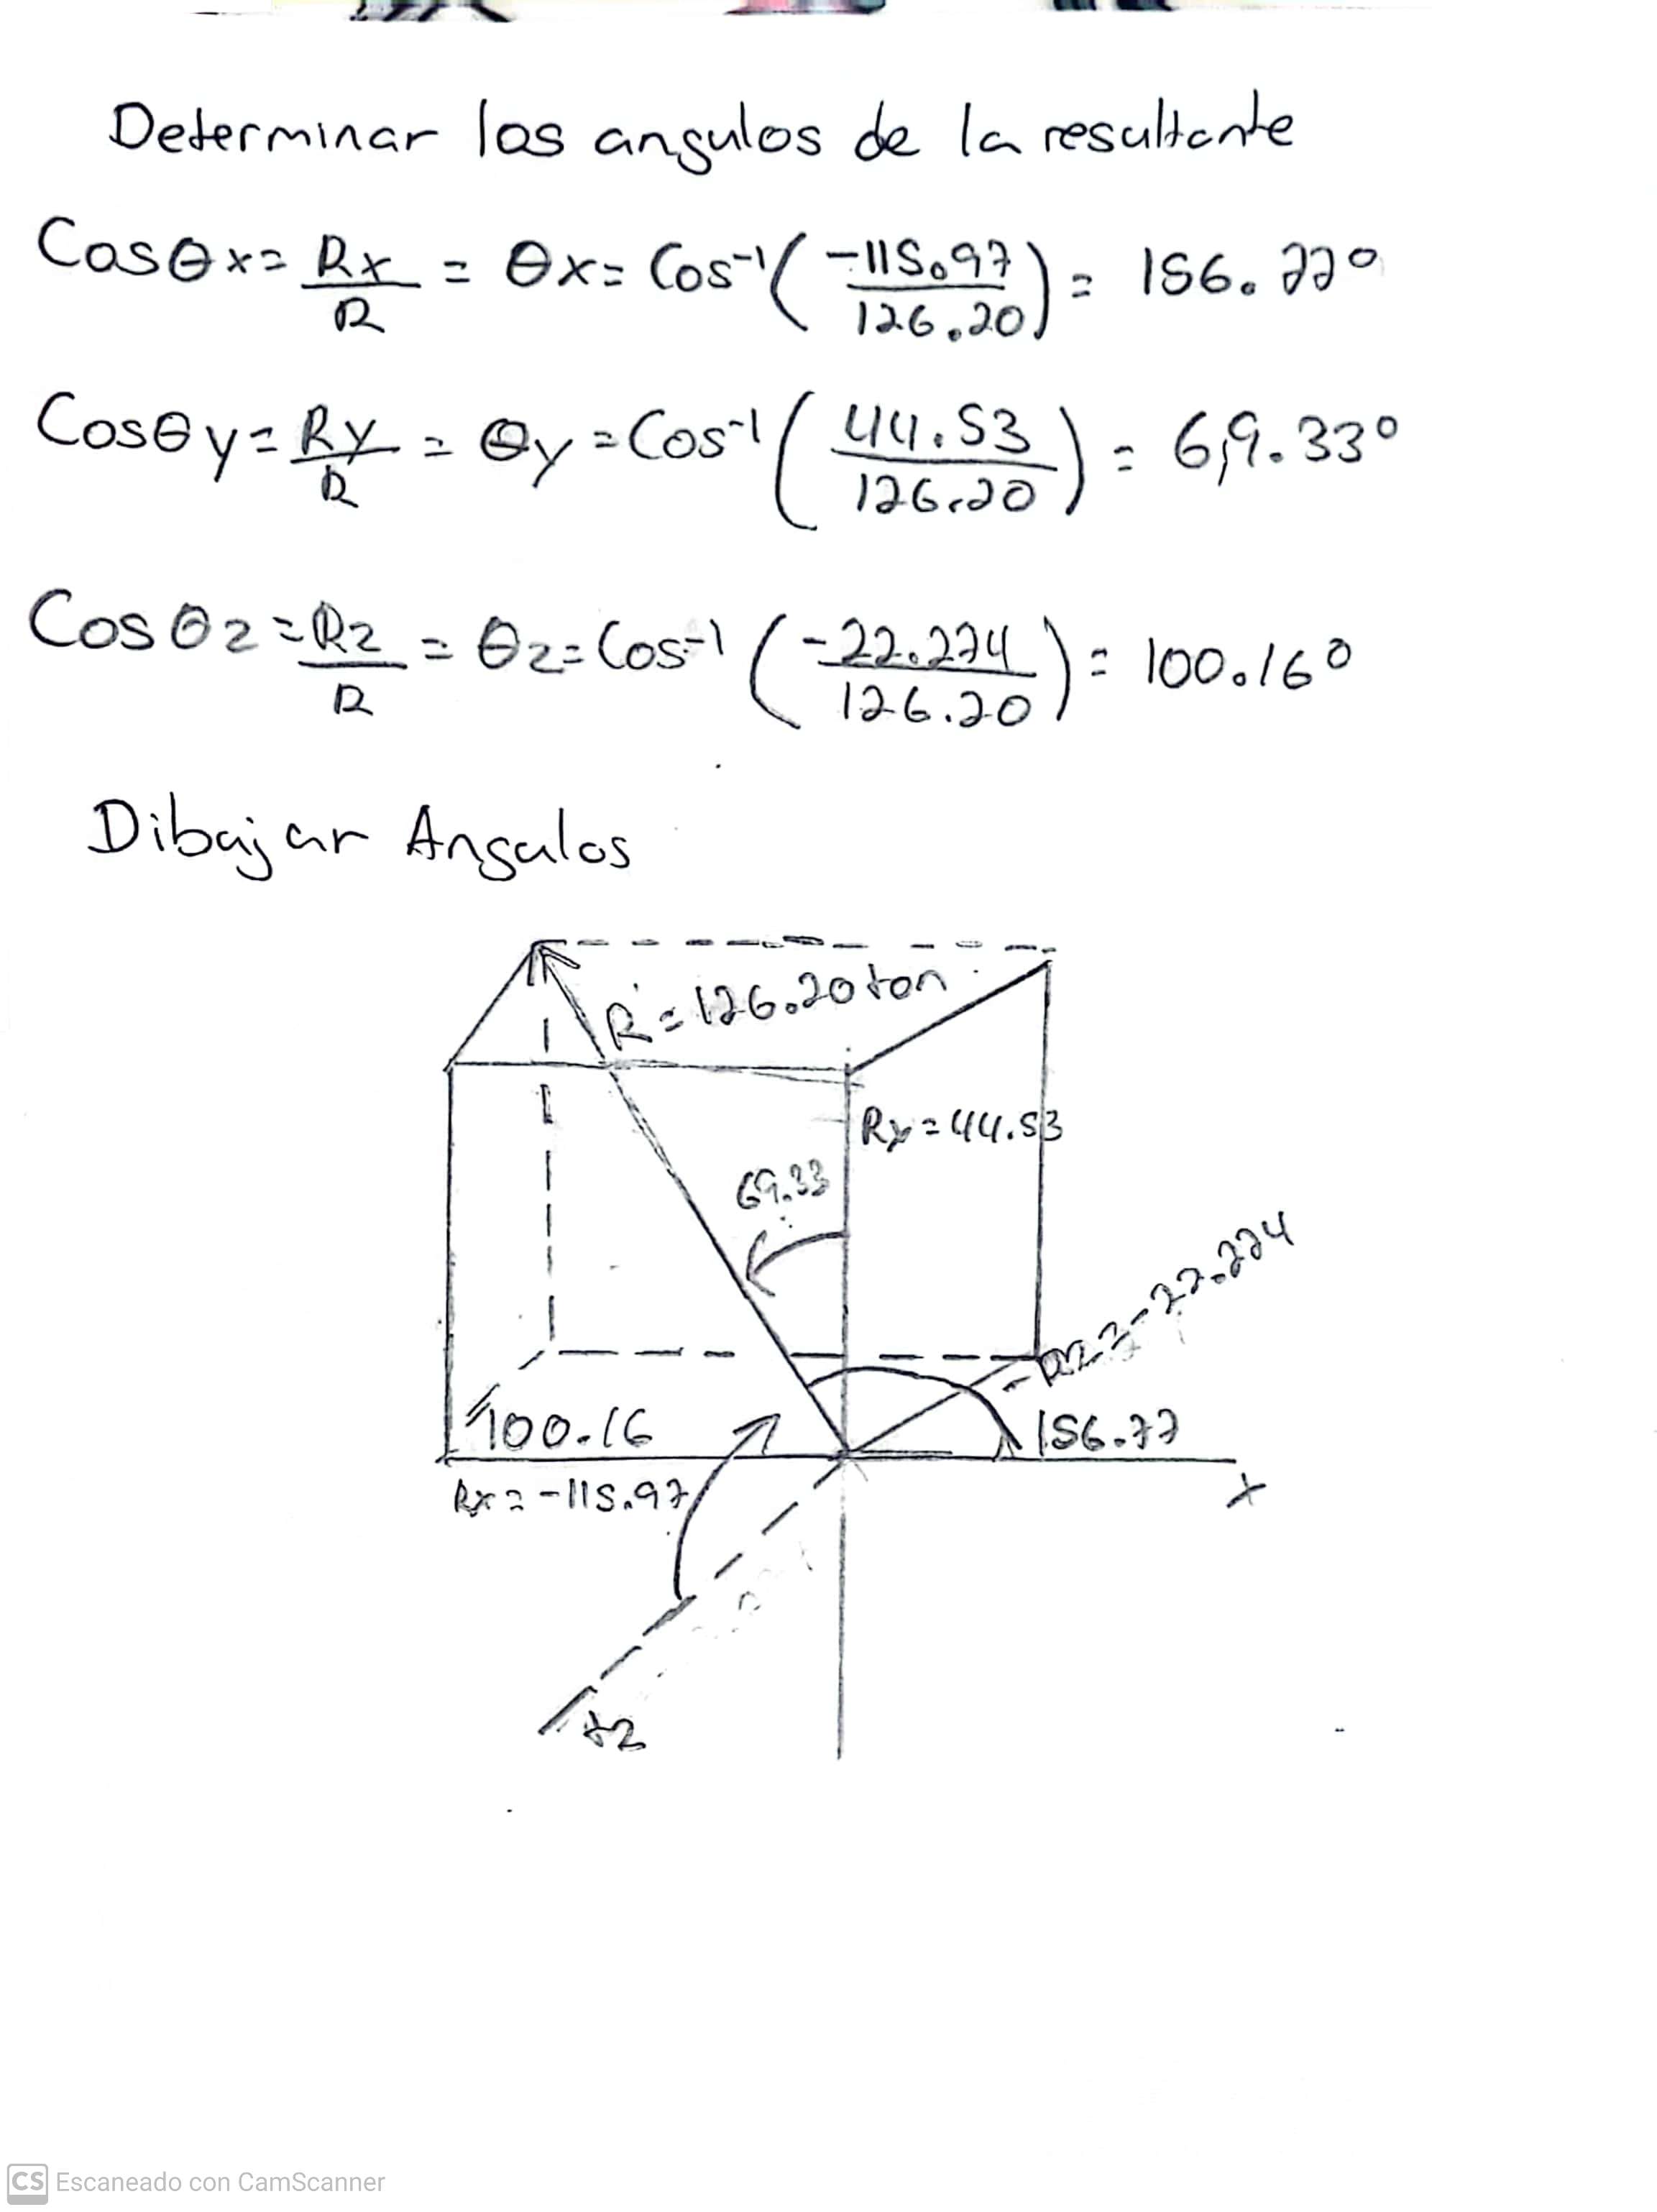 Determinar los angulos de la resultante
Cosθx = Rx/R = θx = Cos⁻¹(-115.97/126.20) = 156.77°
Cosθy = Ry/R = θy = Cos⁻¹(44.53/126.20) = 69.33°
Cosθz = Rz/R = θz = Cos⁻¹(-22.274/126.20) = 100.16°
Dibujar Angulos
R = 126.20 ton
Ry = 44.53
69.33
-Rz = -22.274
100.16
156.77
Rx = -115.97
x
+z
CS Escaneado con CamScanner